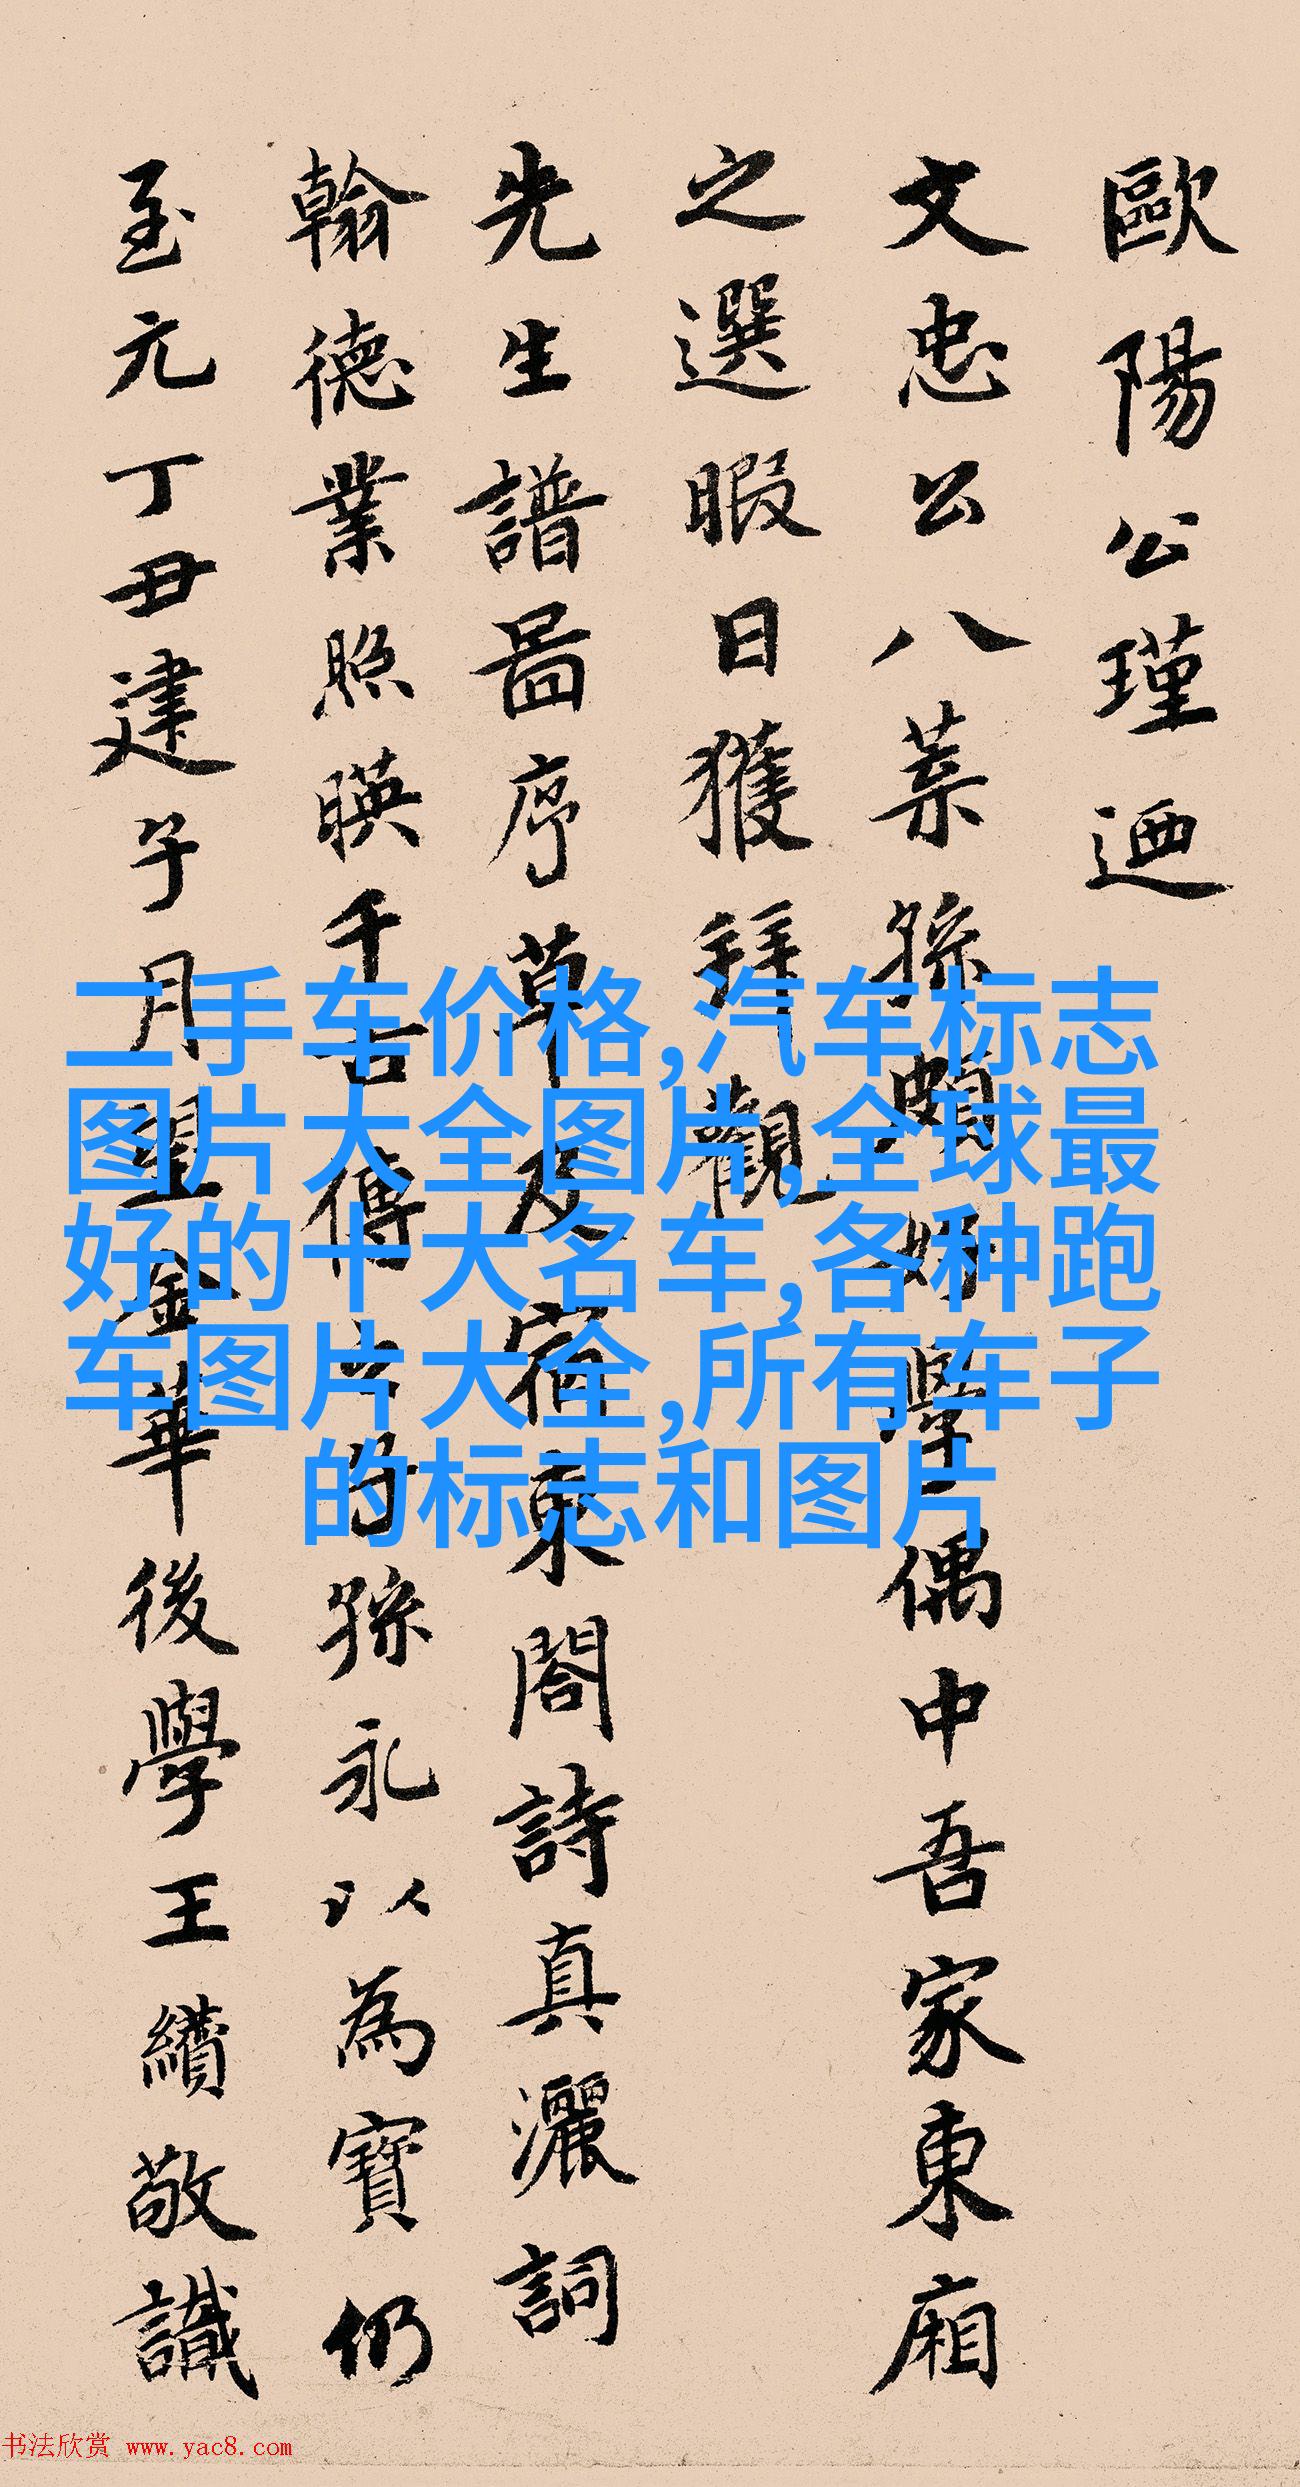 歐陽公瑾迺
文忠公八葉孫頗好學偶中吾家東廂
之選暇日獲拜觀
先生譜圖序草及宿東閣詩真灑詞
翰德業照暎千古傳之的孫永以為寶仍
至元丁丑建子月望金華後學王績敬識
二手车价格,汽车标志
图片大全图片,全球最
好的十大名车,各种跑
车图片大全,所有车子
的标志和图片
书法欣赏 www.yac8.com